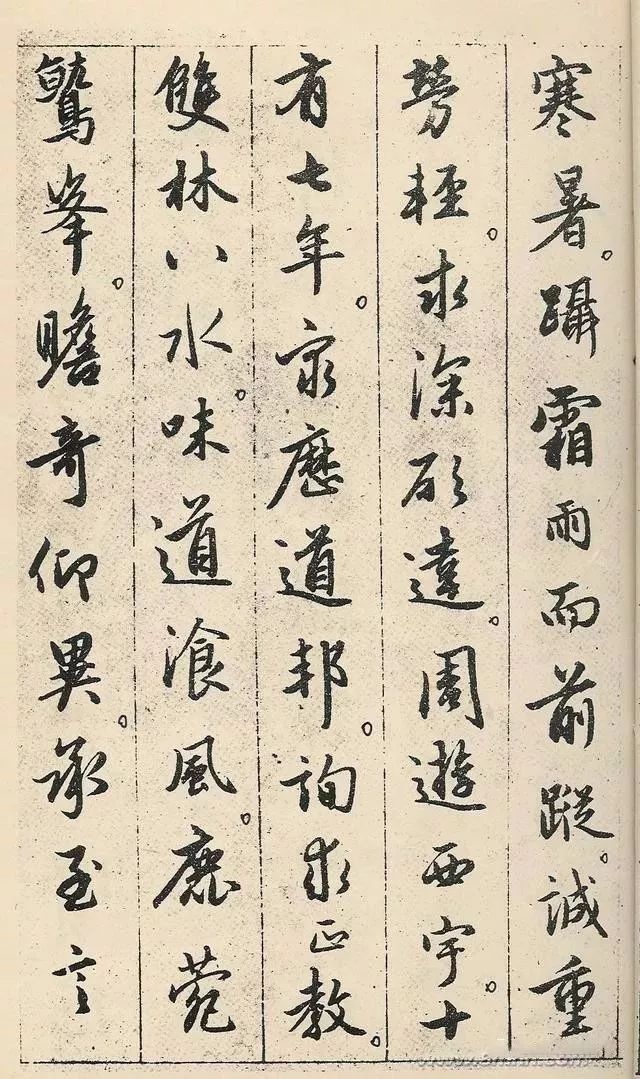 寒暑。躡霜雨而前蹤。誠重
勞輕。求深願達。周遊西宇。十
有七年。窮歷道邦。詢求正教。
雙林八水。味道湌風。鹿菀
鷲峯。瞻奇仰異。承至言